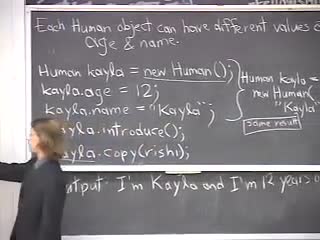 Each Human object can have different values
age & name.
Human kayla = new Human();
kayla.age = 12;
kayla.name = "Kayla";
kayla.introduce();
kayla.copy(rishi);
Human kayla =
new Human(
"Kayla"
same result
Output: I'm Kayla and I'm 12 years